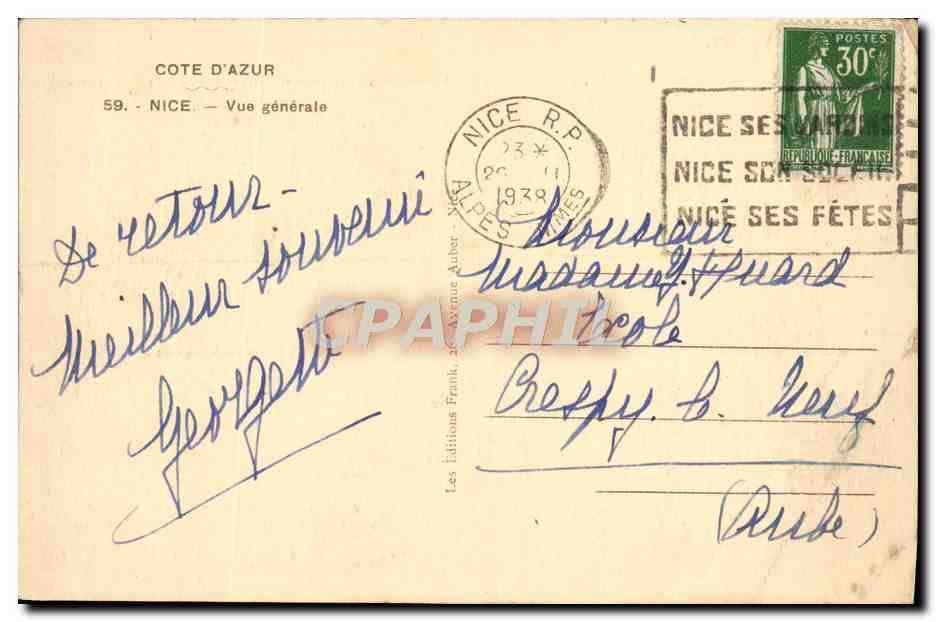 COTE D'AZUR
59. - NICE. — Vue générale
De retour -
Meilleur souvenir
Georgette
Les Editions Frank, Avenue Auber - Nice
NICE R.P.
23 *
1938
ALPES MMES
POSTES
30c
REPUBLIQUE-FRANCAISE
NICE SES JARDINS
NICE SON SOLEIL
NICE SES FÊTES
Monsieur
Madame J. Huard
Ecole
Crespy. le Neuf
(Aube)
CPAPHIL